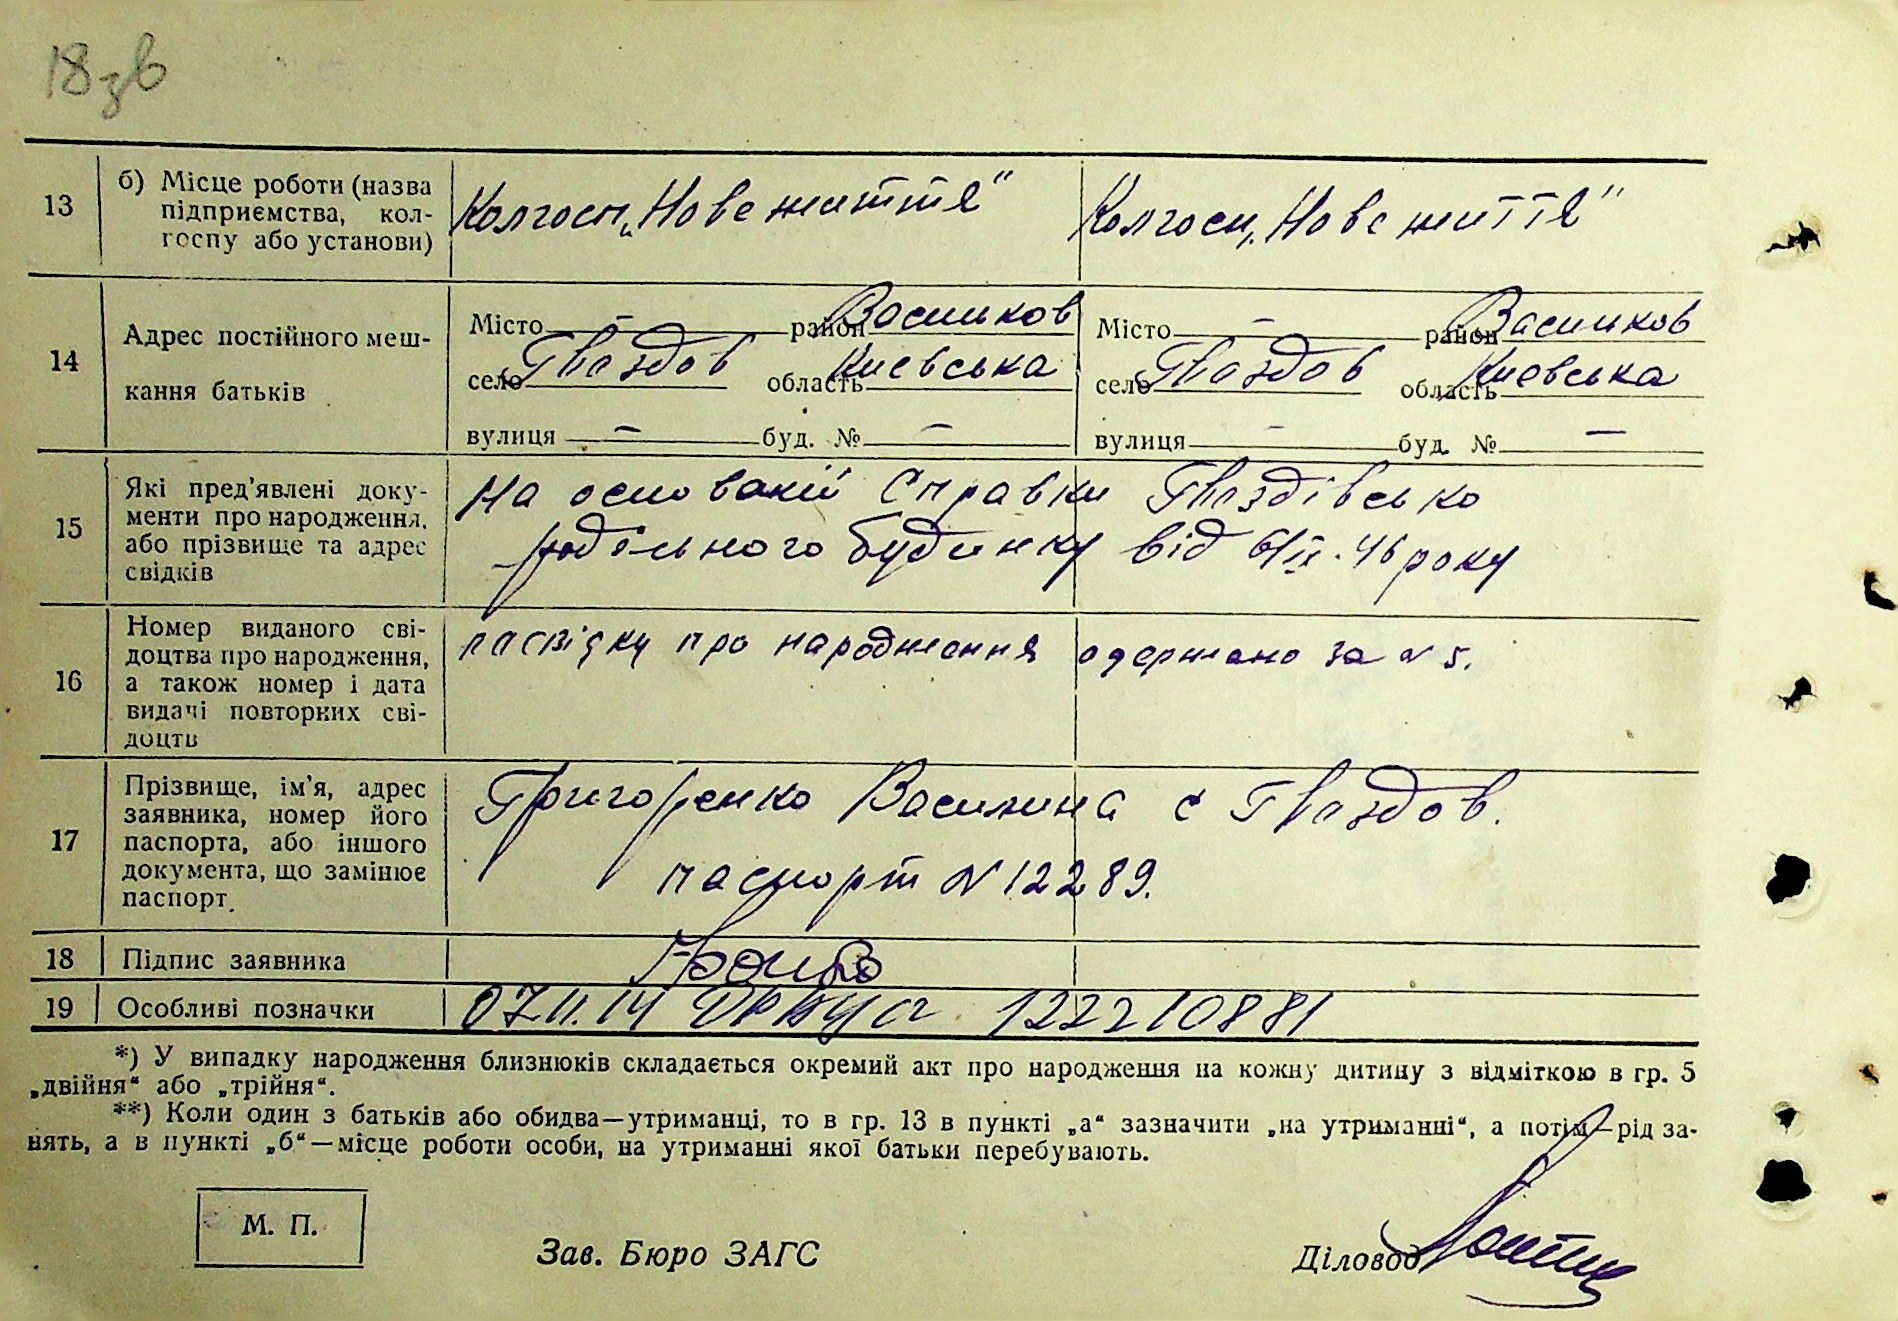 18зв
13 б) Місце роботи (назва Колгосп „Нове життя“ Колгосп „Нове життя“
підприємства, кол-
госпу або установи)
14 Адрес постійного меш-
кання батьків
Місто — район Васильков Місто — район Васильков
село Гваздов область Київська село Гваздов область Київська
вулиця — буд. № — вулиця — буд. № —
15 Які пред'явлені доку-
менти про народження,
або прізвище та адрес
свідків
На основании Справки Гваздівсько
родільного будинку від 6/II-46 року
16 Номер виданого сві-
доцтва про народження,
а також номер і дата
видачі повторних сві-
доцтв
пасвідку про народження одержано за № 5.
17 Прізвище, ім'я, адрес
заявника, номер його
паспорта, або іншого
документа, що замінює
паспорт.
Григоренко Василина с Гваздов.
паспорт № 12289.
18 Підпис заявника
19 Особливі позначки 07.11.14 1222210881
*) У випадку народження близнюків складається окремий акт про народження на кожну дитину з відміткою в гр. 5
„двійня“ або „трійня“.
**) Коли один з батьків або обидва—утриманці, то в гр. 13 в пункті „а“ зазначити „на утриманні“, а потім—рід за-
нять, а в пункті „б“—місце роботи особи, на утриманні якої батьки перебувають.
М. П.
Зав. Бюро ЗАГС Діловод